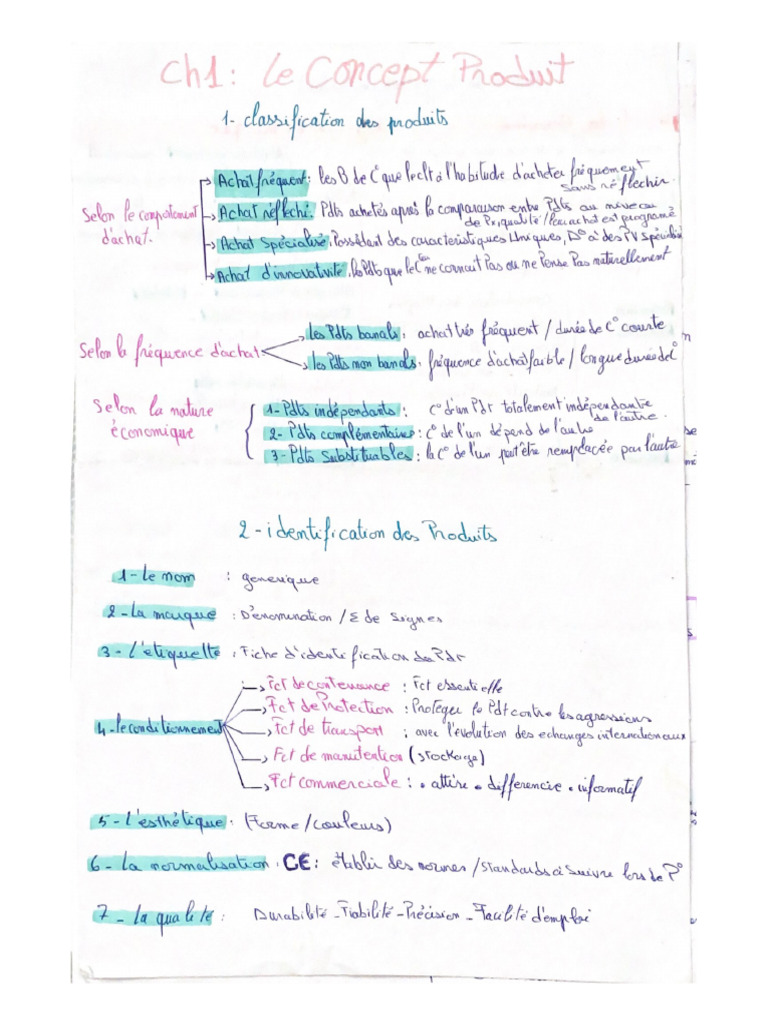 Ch1 : Le Concept Produit
1- classification des produits
Selon le comportement d'achat.
Achat fréquent : les B de C° que le clt à l'habitude d'acheter fréquement
sans réflechir.
Achat réflechi : Pdts achetés après la comparaison entre Pdts au niveau
de Px, qualité / leur achat est programé
Achat Spécialisé, Possédant des caracteristiques Uniques, D° à des PV Spécialisé
Achat d'innovativité, les Pdts que le Cteur ne connait Pas ou ne Pense Pas naturellement
Selon la fréquence d'achat
les Pdts banals : achat très fréquent / durée de C° courte
les Pdts non banals : fréquence d'achat faible / longue durée de C°
Selon la nature
économique
1- Pdts indépendants : C° d'un Pdt totalement indépendante
de l'autre.
2- Pdts complémentaires : C° de l'un dépend de l'autre
3- Pdts Substituables : la C° de l'un peut être remplacée par l'autre
2- identification des Produits
1- le nom : generique
2- La marque : D'enomination / Σ de Signes
3- L'étiquette : Fiche d'identification de Pdt
4- le conditionnement
Fct de contenance : Fct essentielle
Fct de Protection : Protéger le Pdt contre les agressions
Fct de transport : avec l'évolution des echanges internationaux
Fct de manutention (stockage)
Fct commerciale : • attire • differencie • informatif
5- l'esthétique : (Forme / couleurs)
6- La normalisation : CE : établir des normes / Standards à Suivre lors de P°
7- la qualité : Durabilité - Fiabilité - Précision - Facilité d'emploi